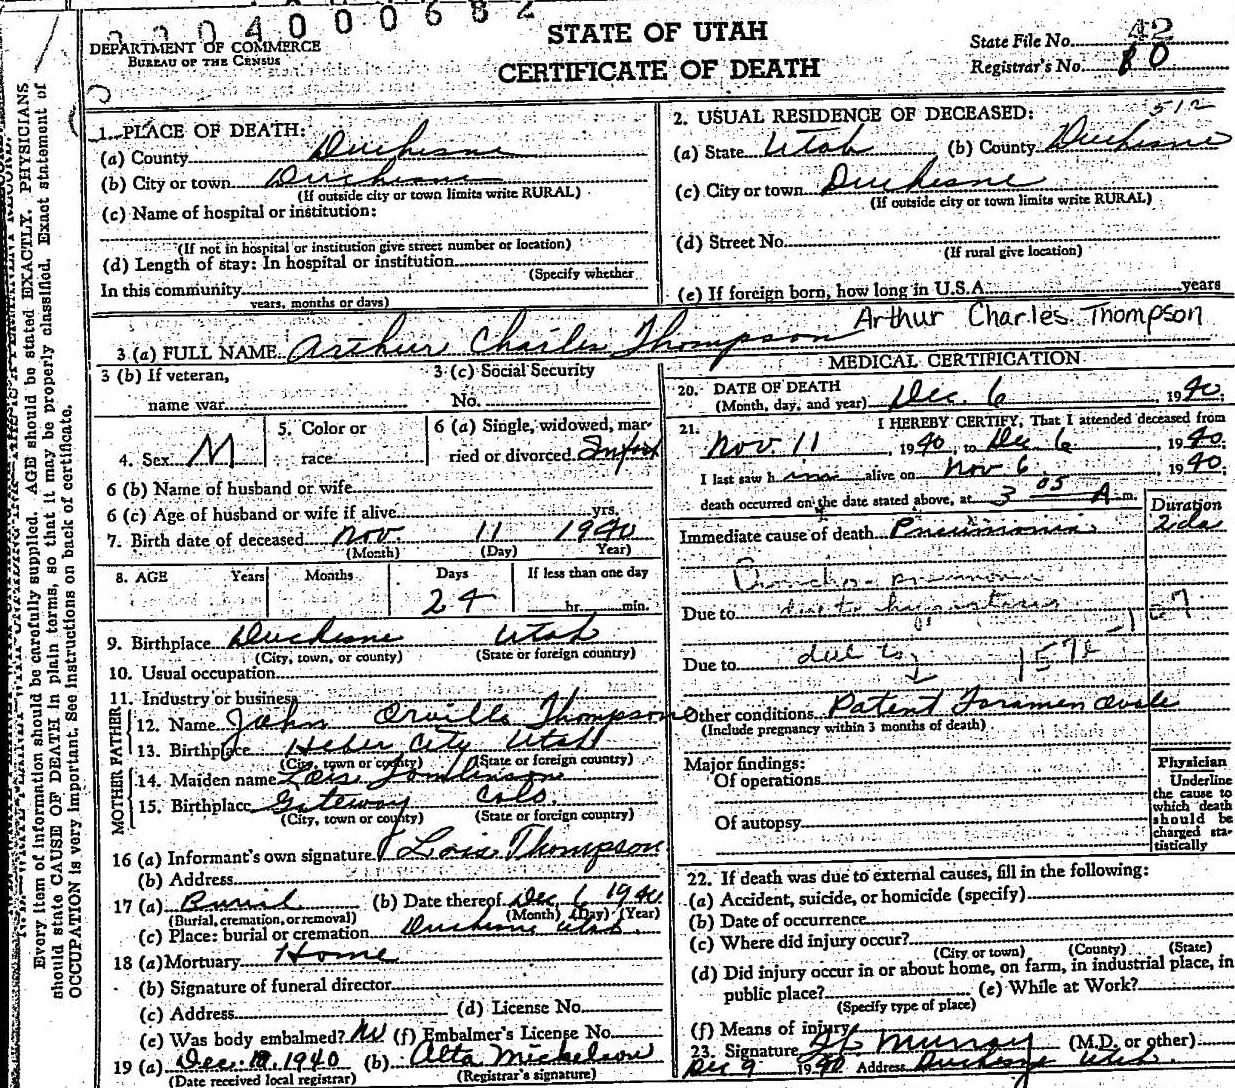 4000682
STATE OF UTAH
CERTIFICATE OF DEATH
DEPARTMENT OF COMMERCE
BUREAU OF THE CENSUS
State File No. 42
Registrar's No. 10
Every item of information should be carefully supplied. AGE should be stated EXACTLY. PHYSICIANS
should state CAUSE OF DEATH in plain terms, so that it may be properly classified. Exact statement of
OCCUPATION is very important. See instructions on back of certificate.
1. PLACE OF DEATH:
(a) County Duchesne
(b) City or town Duchesne
(If outside city or town limits write RURAL)
(c) Name of hospital or institution:
(If not in hospital or institution give street number or location)
(d) Length of stay: In hospital or institution
(Specify whether
In this community
years, months or days)
2. USUAL RESIDENCE OF DECEASED: 512
(a) State Utah (b) County Duchesne
(c) City or town Duchesne
(If outside city or town limits write RURAL)
(d) Street No.
(If rural give location)
(e) If foreign born, how long in U.S.A. years
3 (a) FULL NAME Arthur Charles Thompson Arthur Charles Thompson
3 (b) If veteran,
name war
3 (c) Social Security
No.
4. Sex M
5. Color or
race
6 (a) Single, widowed, mar-
ried or divorced Infant
6 (b) Name of husband or wife
6 (c) Age of husband or wife if alive yrs.
7. Birth date of deceased Nov. 11 1940
(Month) (Day) Year)
8. AGE Years Months Days If less than one day
24 hr. min.
9. Birthplace Duchesne Utah
(City, town, or county) (State or foreign country)
10. Usual occupation
11. Industry or business
FATHER
12. Name John Orville Thompson
13. Birthplace Heber City Utah
(City, town or county) (State or foreign country)
MOTHER
14. Maiden name Lois Tomlinson
15. Birthplace Gateway Colo.
(City, town or county) (State or foreign country)
16 (a) Informant's own signature Lois Thompson
(b) Address
17 (a) Burial (b) Date thereof Dec 6 1940
(Burial, cremation, or removal) (Month) (Day) (Year)
(c) Place: burial or cremation Duchesne Utah.
18 (a) Mortuary Home
(b) Signature of funeral director
(c) Address (d) License No.
(e) Was body embalmed? No (f) Embalmer's License No.
19 (a) Dec. 1940 (b) Alta Mickelson
(Date received local registrar) (Registrar's signature)
MEDICAL CERTIFICATION
20. DATE OF DEATH
(Month, day, and year) Dec. 6, 1940;
21. I HEREBY CERTIFY, That I attended deceased from
Nov. 11, 1940, to Dec 6, 1940;
I last saw him alive on Nov 6, 1940;
death occurred on the date stated above, at 3 05 A m.
Duration
Immediate cause of death Pneumonia 2 da
Broncho-pneumonia
Due to due to
Due to due to 157e
Other conditions Patent Foramen Ovale
(Include pregnancy within 3 months of death)
Major findings:
Of operations
Of autopsy
Physician
Underline
the cause to
which death
should be
charged sta-
tistically
22. If death was due to external causes, fill in the following:
(a) Accident, suicide, or homicide (specify)
(b) Date of occurrence
(c) Where did injury occur?
(City or town) (County) (State)
(d) Did injury occur in or about home, on farm, in industrial place, in
public place? (e) While at Work?
(Specify type of place)
(f) Means of injury
23. Signature Murray (M.D. or other)
Dec 9 1940 Address Duchesne Utah.